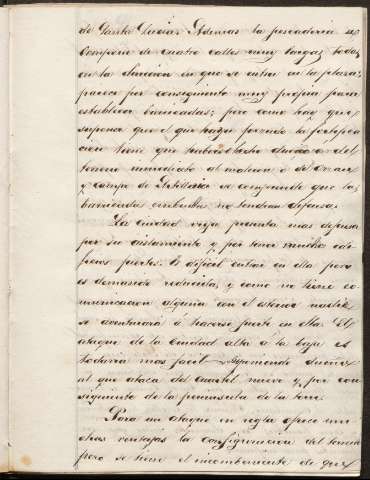 de Santa Lucia. Ademas la pescaderia se
compone de cuatro calles muy largas todas
en la direccion en que se entra en la plaza,
parece por consiguiente muy propia para
establecer barricadas; pero como hay que
suponer que el que haya forzado la fortifica
cion tiene que haberse hecho dueño del
terreno inmediato al malecon ó del
y campo de Artilleria se comprende que las
barricadas no tendran defensa.
La ciudad vieja presenta mas defensa
por su aislamiento y por tener muchos edi
ficios fuertes. Es dificil entrar en ella pero
es demasiado reducida, y como no tiene co
municacion alguna con el esterior nadie
se aventurará á hacerse fuerte en ella. El
ataque de la ciudad alta á la baja es
todavia mas facil suponiendo dueño
al que ataca del cuartel nuevo y, por con
siguiente de la peninsula de la torre.
Para un ataque en regla ofrece mu
chas ventajas la configuracion del terreno
pero se tiene el inconveniente de que